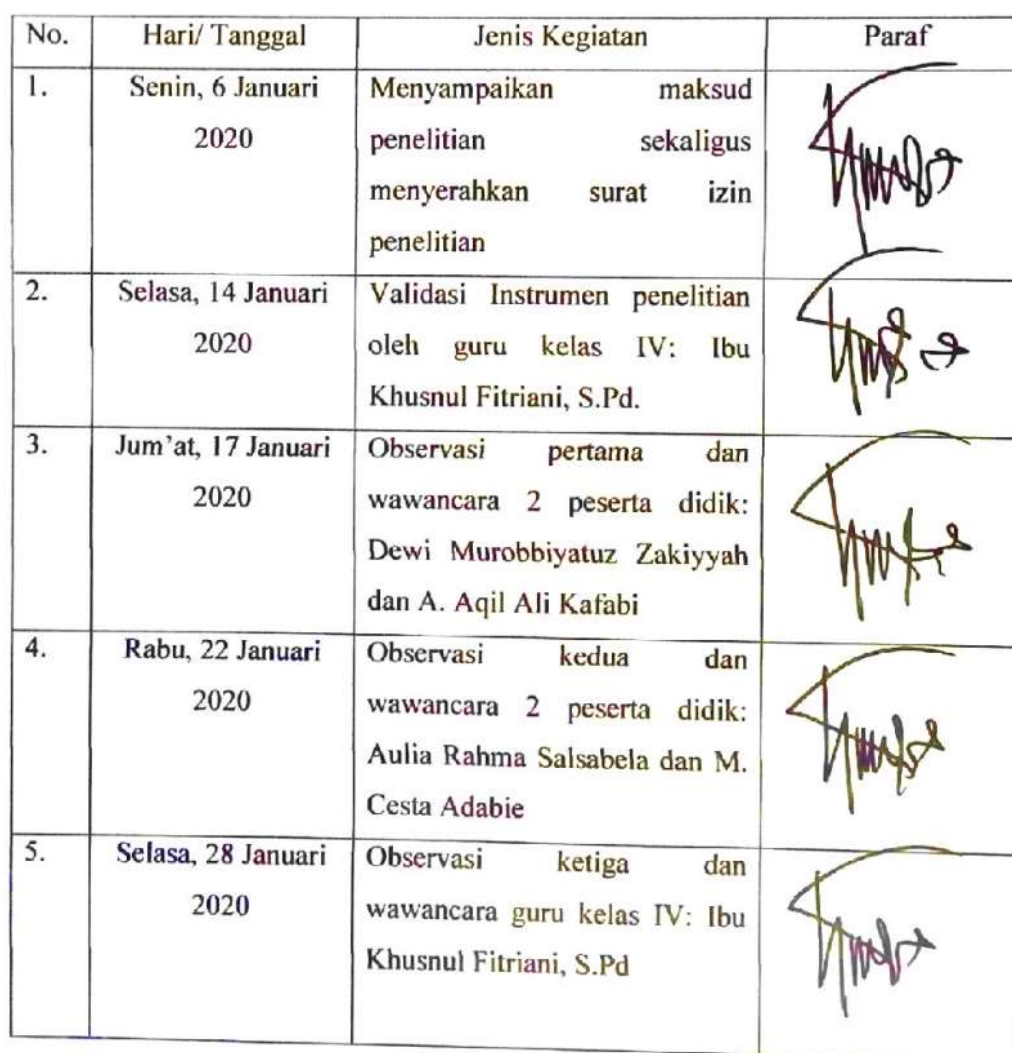 No. Hari/ Tanggal Jenis Kegiatan Paraf
1. Senin, 6 Januari Menyampaikan maksud
2020 penelitian sekaligus
menyerahkan surat izin
penelitian
2. Selasa, 14 Januari Validasi Instrumen penelitian
2020 oleh guru kelas IV: Ibu
Khusnul Fitriani, S.Pd.
3. Jum'at, 17 Januari Observasi pertama dan
2020 wawancara 2 peserta didik:
Dewi Murobbiyatuz Zakiyyah
dan A. Aqil Ali Kafabi
4. Rabu, 22 Januari Observasi kedua dan
2020 wawancara 2 peserta didik:
Aulia Rahma Salsabela dan M.
Cesta Adabie
5. Selasa, 28 Januari Observasi ketiga dan
2020 wawancara guru kelas IV: Ibu
Khusnul Fitriani, S.Pd